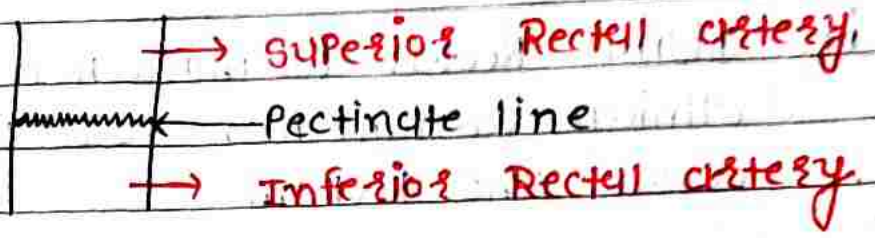 Superior Rectal artery.
Pectinate line
Inferior Rectal artery